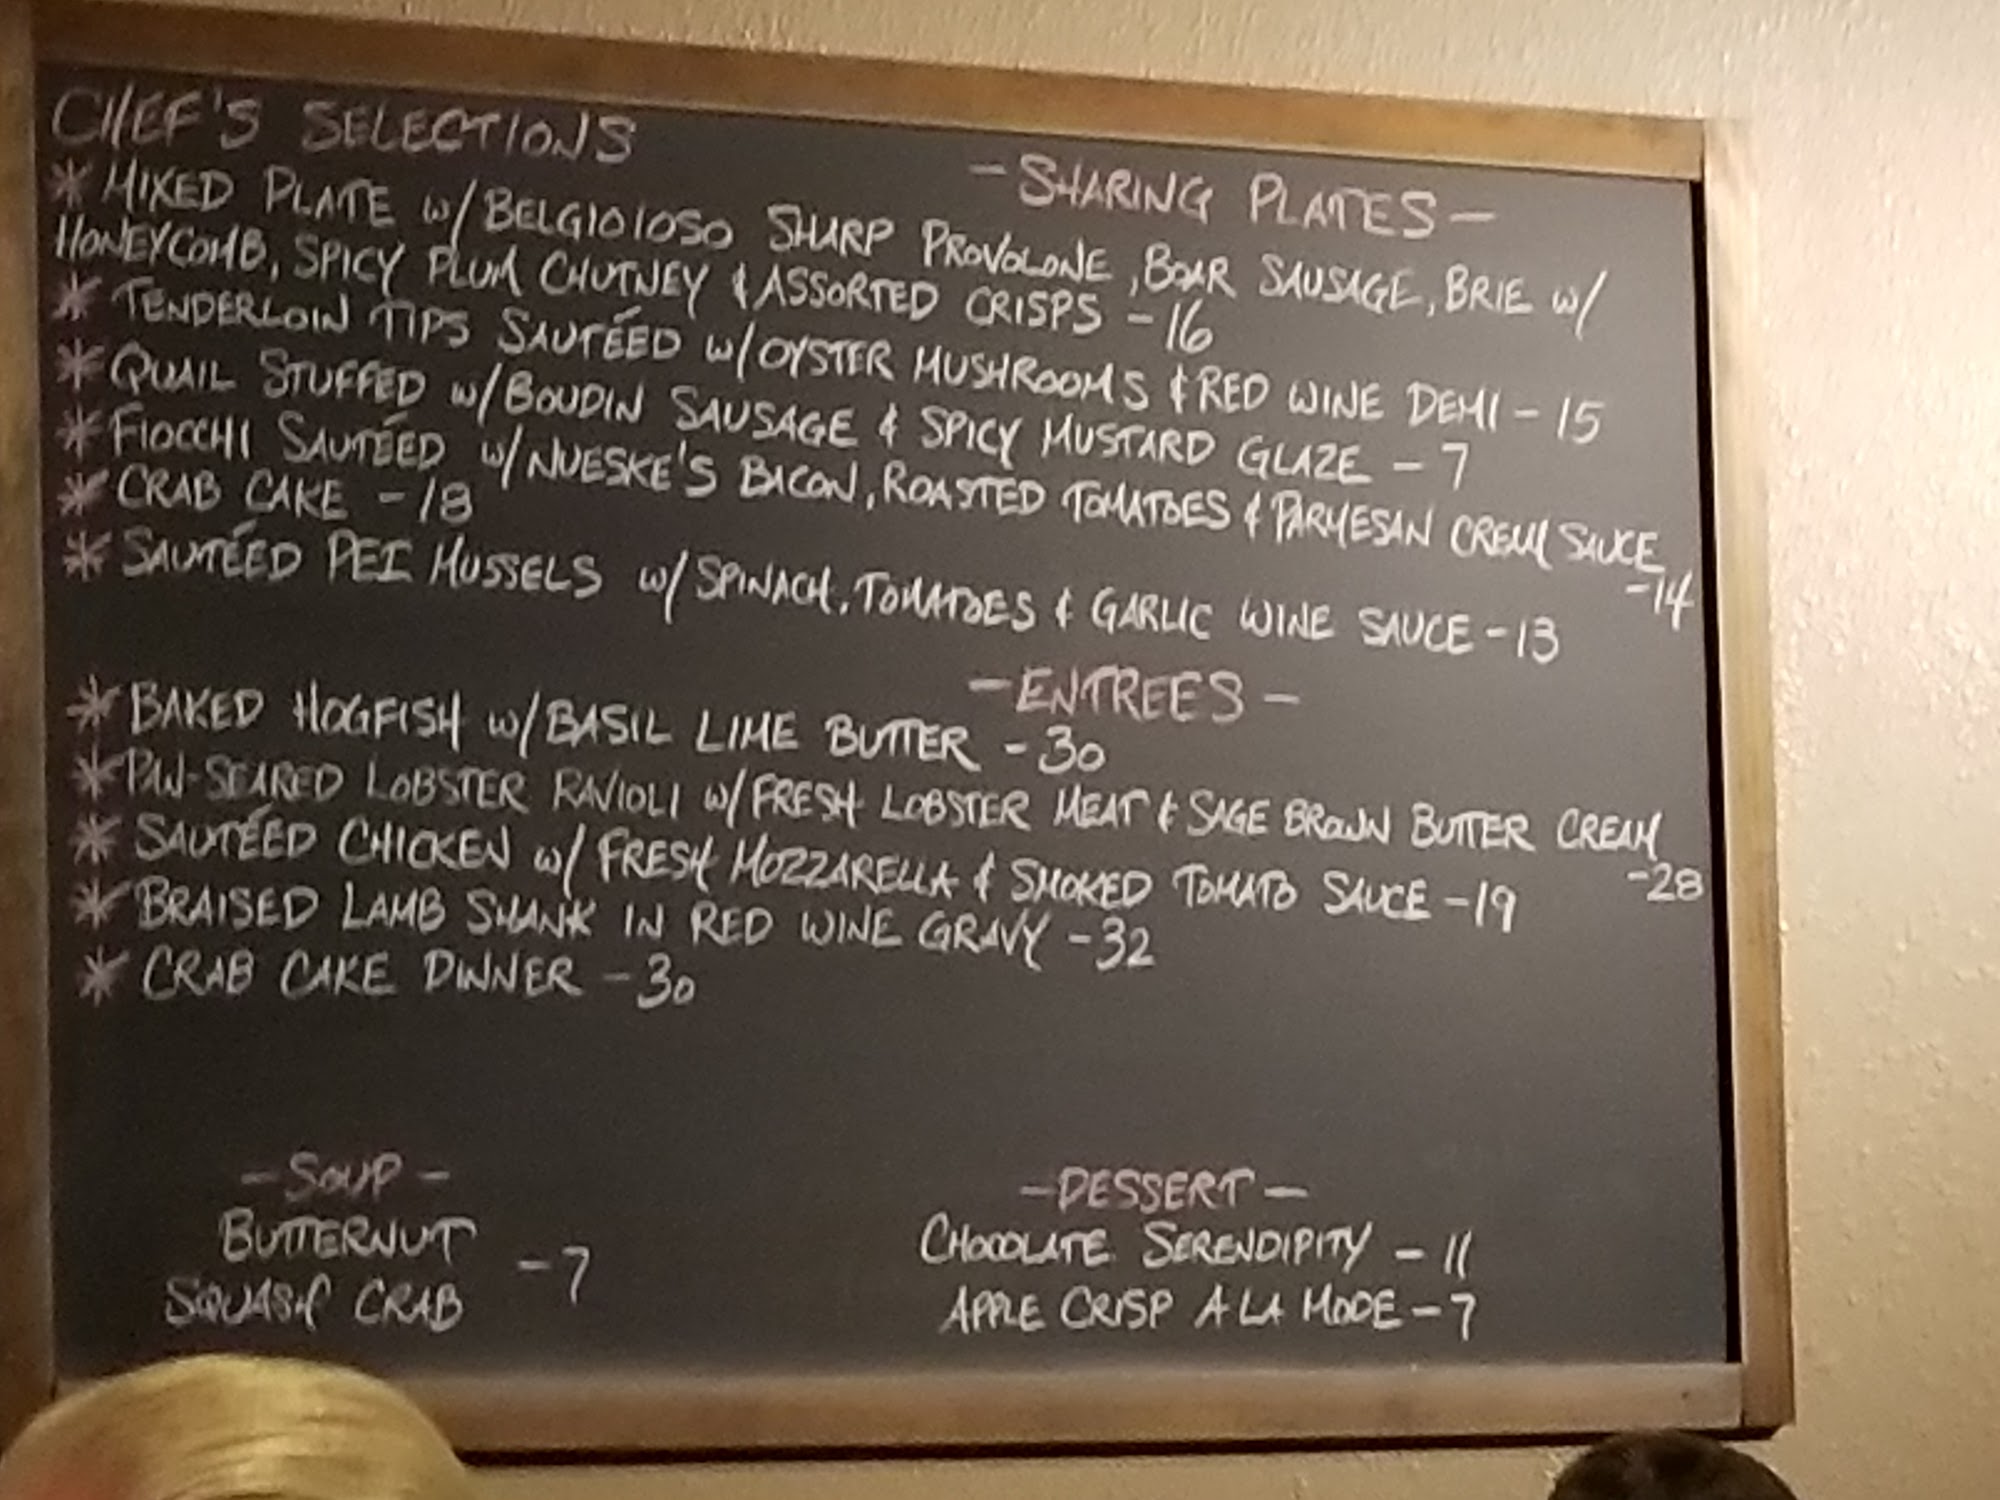 CHEF'S SELECTIONS
- SHARING PLATES -
* MIXED PLATE w/ BELGIOIOSO SHARP PROVOLONE, BOAR SAUSAGE, BRIE w/
HONEYCOMB, SPICY PLUM CHUTNEY & ASSORTED CRISPS - 16
* TENDERLOIN TIPS SAUTÉED w/ OYSTER MUSHROOMS & RED WINE DEMI - 15
* QUAIL STUFFED w/ BOUDIN SAUSAGE & SPICY MUSTARD GLAZE - 7
* FIOCCHI SAUTÉED w/ NUESKE'S BACON, ROASTED TOMATOES & PARMESAN CREAM SAUCE
- 14
* CRAB CAKE - 18
* SAUTÉED PEI MUSSELS w/ SPINACH, TOMATOES & GARLIC WINE SAUCE - 13
- ENTREES -
* BAKED HOGFISH w/ BASIL LIME BUTTER - 30
* PAN-SEARED LOBSTER RAVIOLI w/ FRESH LOBSTER MEAT & SAGE BROWN BUTTER CREAM
- 28
* SAUTÉED CHICKEN w/ FRESH MOZZARELLA & SMOKED TOMATO SAUCE - 19
* BRAISED LAMB SHANK IN RED WINE GRAVY - 32
* CRAB CAKE DINNER - 30
- SOUP -
BUTTERNUT
SQUASH CRAB - 7
- DESSERT -
CHOCOLATE SERENDIPITY - 11
APPLE CRISP A LA MODE - 7